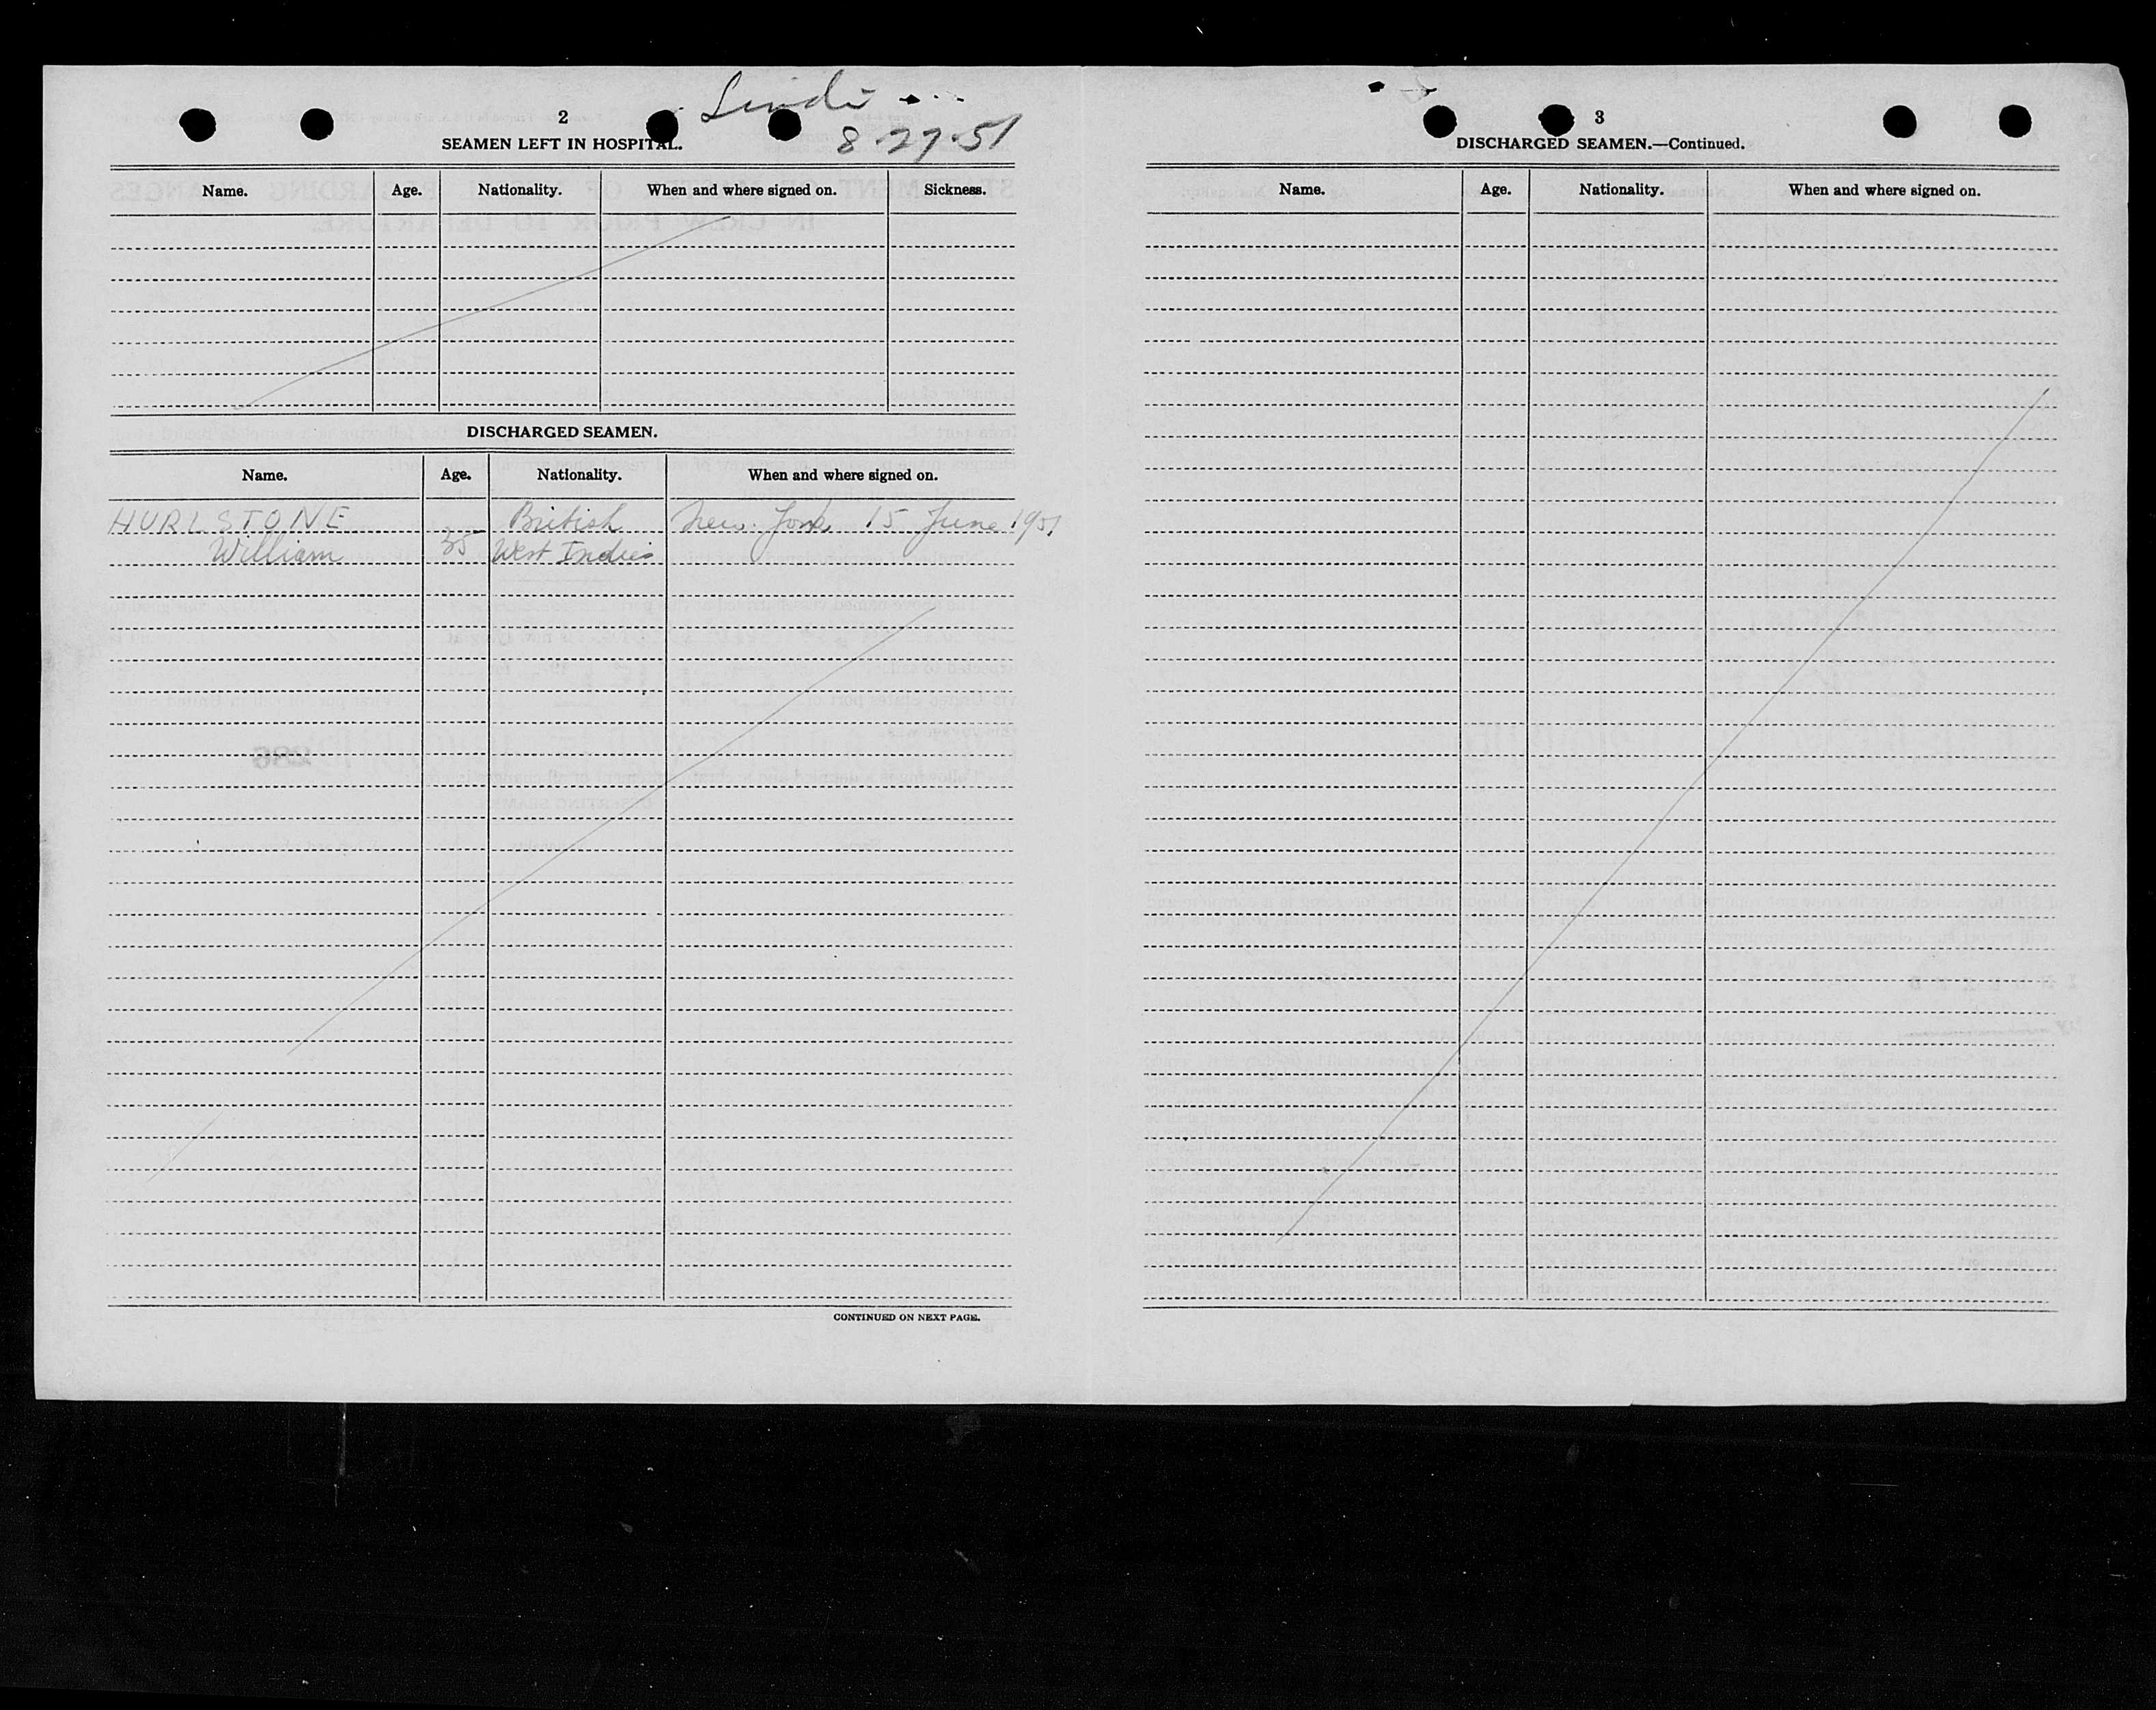 2
8-27-51
SEAMEN LEFT IN HOSPITAL.
Name. Age. Nationality. When and where signed on. Sickness.
DISCHARGED SEAMEN.
Name. Age. Nationality. When and where signed on.
HURLSTONE British New York 15 June 1951
William 35 West Indies
CONTINUED ON NEXT PAGE.
3
DISCHARGED SEAMEN.—Continued.
Name. Age. Nationality. When and where signed on.